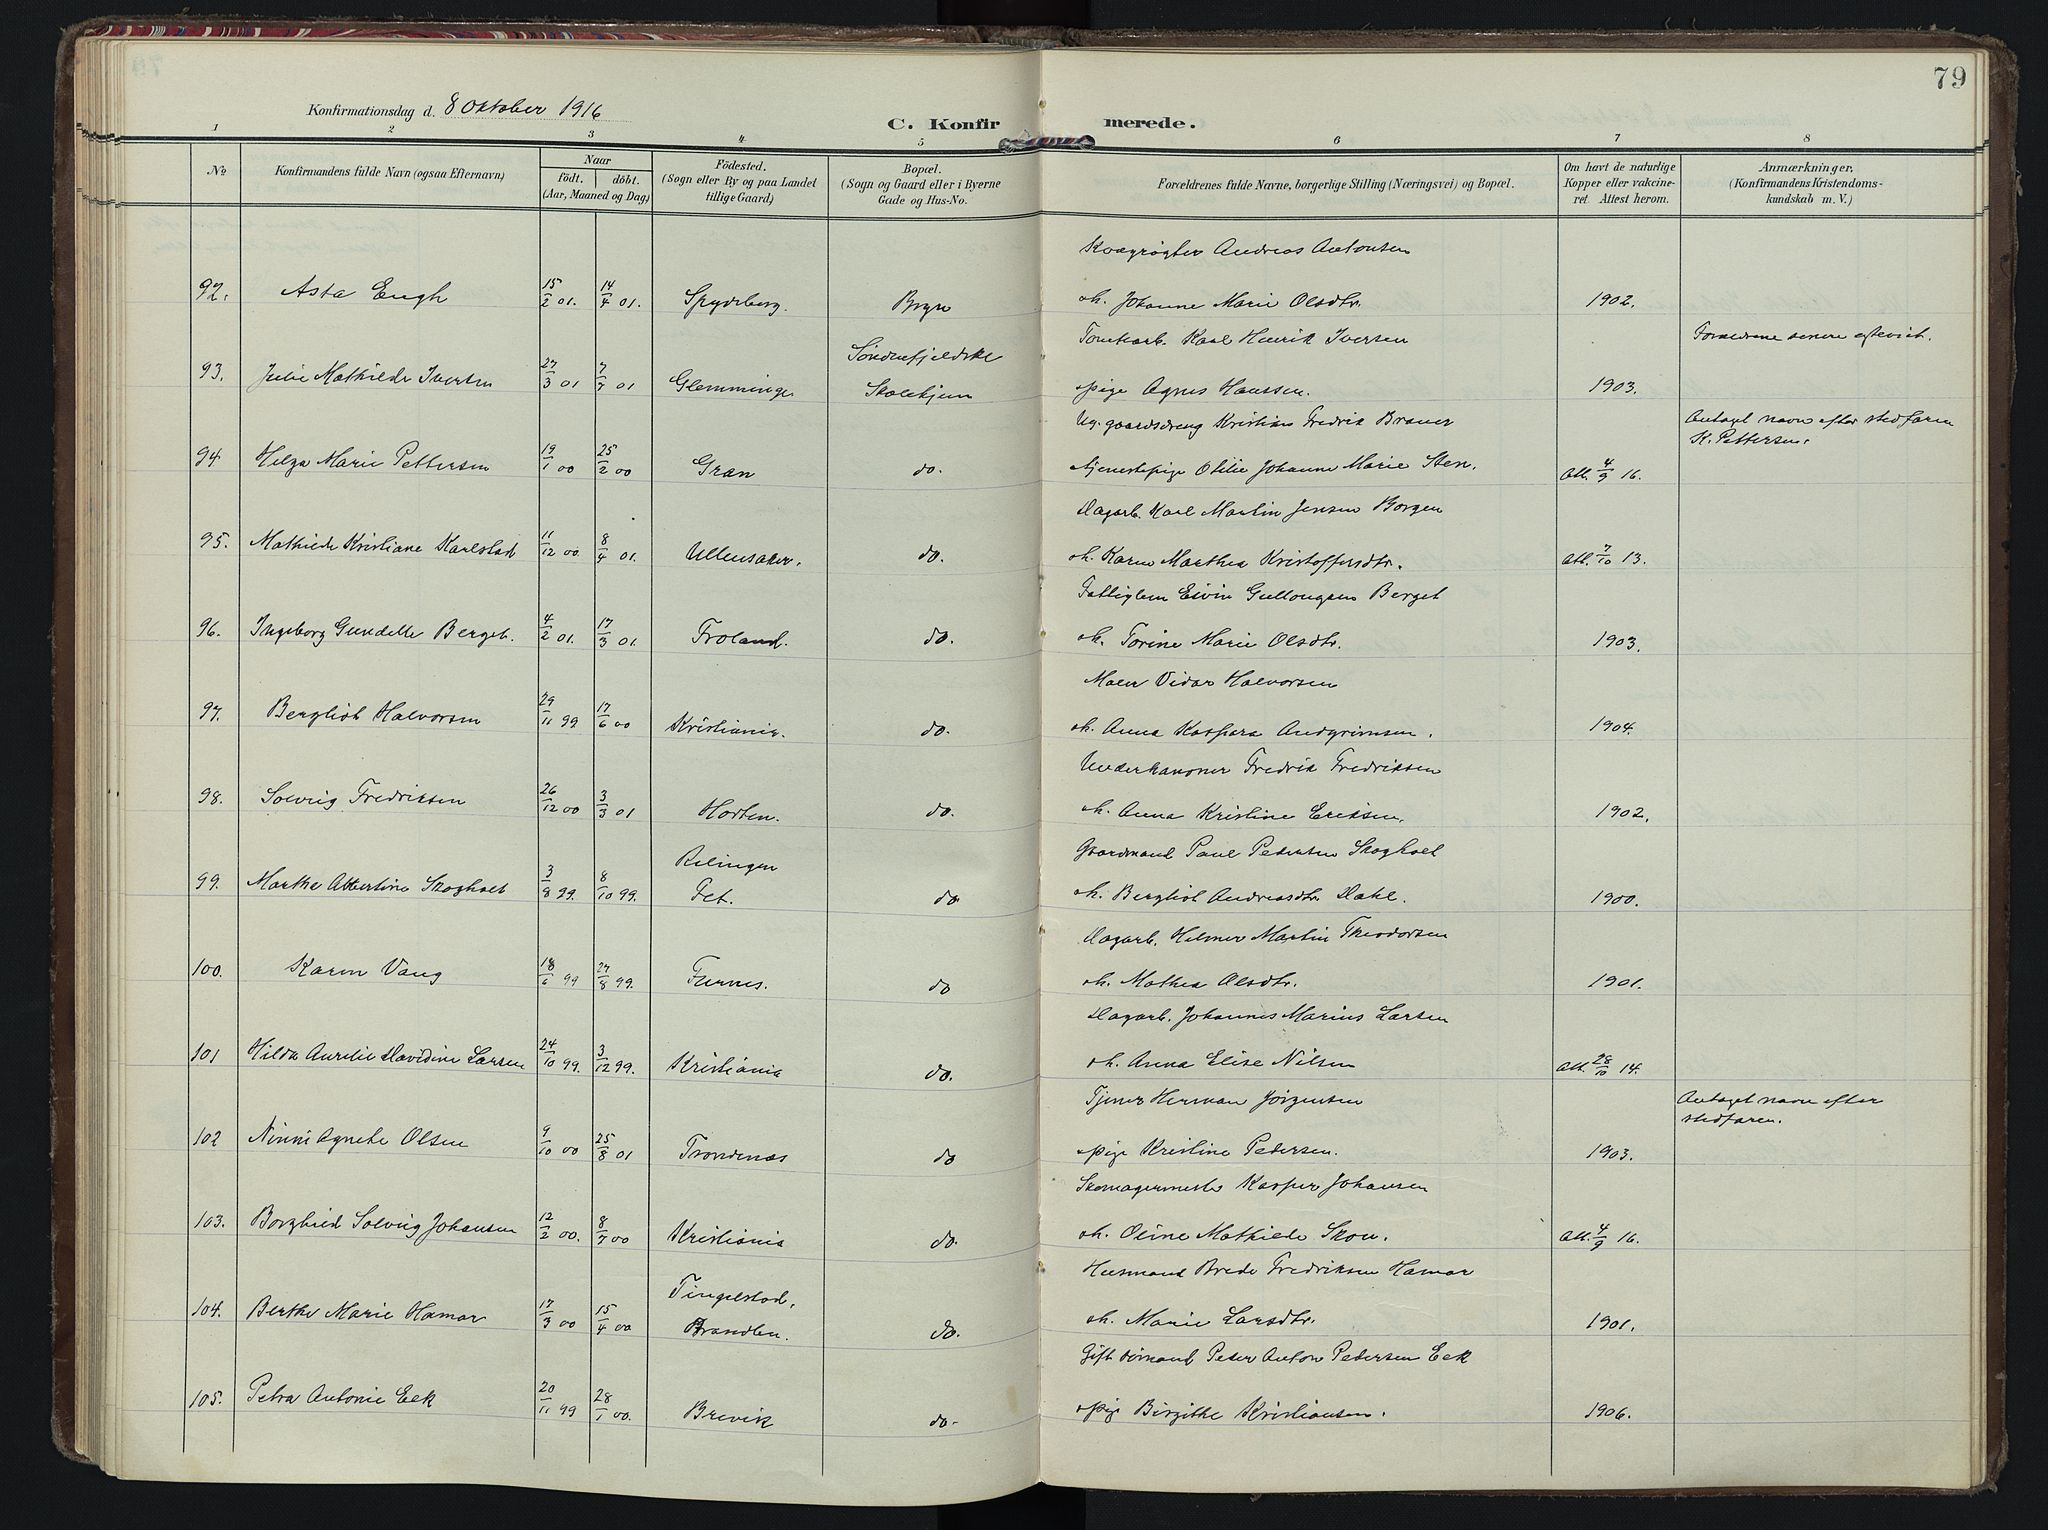 79
Konfirmationsdag d. 8 Oktober 1916
C. Konfirmerede.
1 2 3 4 5 6 7 8
No
Konfirmandens fulde Navn (ogsaa Efternavn)
Naar
födt. döbt.
(Aar, Maaned og Dag)
Födested.
(Sogn eller By og paa Landet
tillige Gaard)
Bopæl.
(Sogn og Gaard eller i Byerne
Gade og Hus-No.
Forældrenes fulde Navne, borgerlige Stilling (Næringsvei) og Bopæl.
Om havt de naturlige
Kopper eller vakcine-
ret Attest herom.
Anmærkninger,
(Konfirmandens Kristendoms-
kundskab m. V.)
Kvægrøgter Andreas Antonsen
92. Asta Engh 15/2 01. 14/4 01. Spydeberg. Bryn
oh. Johanne Marie Olsdtr. 1902.
Tomtearb. Karl Henrik Iversen
Forældrene senere egteviet.
93. Julie Mathilde Iversen 27/3 01 7/7 01 Glemminge Söndenfjeldske
Skolehjem
pige Agnes Hanssen. 1903.
Ug. gaardsdreng Kristian Fredrik Braner
Antaget navn efter stedfaren
K. Pettersen.
94. Helga Marie Pettersen 19/1 00 25/2 00 Gran do.
tjenestepige Otilie Johanne Marie Sten. Att. 4/9 16.
Dagarb. Karl Martin Jensen Borgen
95. Mathilde Kristiane Karlstad 11/12 00 8/4 01. Ullensaker. do.
oh. Karen Marthea Kristoffersdtr. Att. 7/10 13.
Fattiglem Eivin Gullongsen Berget
96. Ingeborg Gundelle Berget. 4/2 01. 17/3 01. Froland. do.
oh. Torine Marie Olsdtr. 1903.
Maler Vidar Halvorsen
97. Bergliot Halvorsen 29/11 99 17/6 00 Kristiania. do.
oh. Anna Kaspara Andgrimsen. 1904.
Underkanoner Fredrik Fredriksen
98. Solveig Fredriksen 26/12 00 3/3 01 Horten. do.
oh. Anna Kristine Eriksen. 1902.
Gaardmand Paul Pedersen Skogholt
99. Marthe Albertine Skogholt 3/8 99. 8/10 99. Relingen
Fet. do
oh. Bergliot Andreasdtr. Dahl. 1900.
Dagarb. Helmer Martin Theodorsen
100. Karen Vang 18/6 99 27/8 99. Furnes. do
oh. Mathea Olsdtr. 1901.
Dagarb. Johannes Marius Larsen
101 Hilda Aurelie Davidine Larsen 24/10 99. 3/12 99. Kristiania do.
oh. Anna Elise Nilsen Att. 28/10 14.
Tjener Herman Jörgensen
Antaget navn efter
stedfaren.
102 Ninni Agnete Olsen 9/10 00 25/8 01 Trondenæs do
pige Kristine Pedersen. 1903.
Skomagermester Kasper Johansen
103. Borghild Solveig Johansen 12/2 00. 8/7 00 Kristiania do.
oh. Oline Mathilde Skou. Att. 4/9 16.
Husmand Brede Fredriksen Hamar
104. Berthe Marie Hamar 17/3 00 15/4 00 Tingelstad,
Brandbu. do.
oh. Marie Larsdtr. 1901.
Gift sömand Peter Anton Pedersen Eek
105. Petra Antonie Eek 20/11 99 28/1 00. Brevik do.
pige Birgithe Kristiansen. 1906.